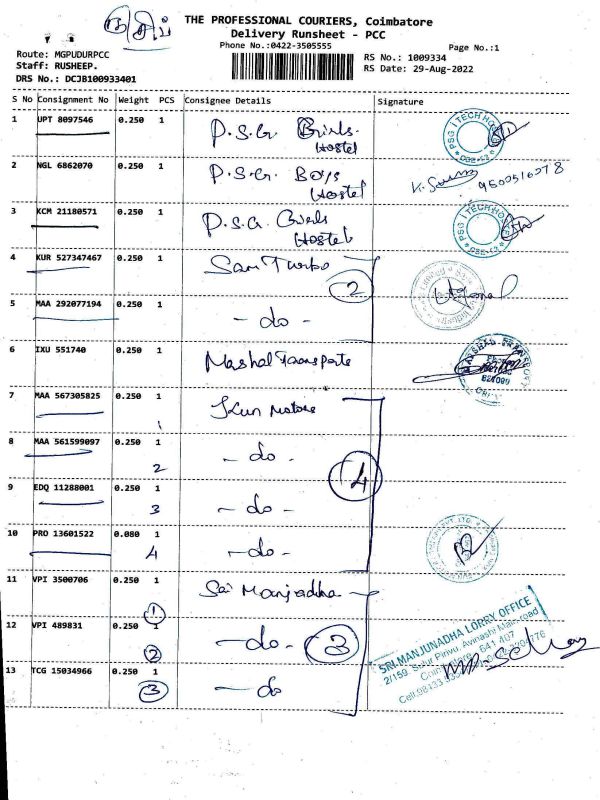 THE PROFESSIONAL COURIERS, Coimbatore
Delivery Runsheet - PCC
Phone No.:0422-3505555
Page No.:1
Route: MGPUDURPCC
Staff: RUSHEEP.
DRS No.: DCJB100933401
RS No.: 1009334
RS Date: 29-Aug-2022
S No Consignment No Weight PCS Consignee Details Signature
1 UPT 8097546 0.250 1 P.S.G. Girls Hostel
PSG iTECH HOSTEL
CBE-62
2 NGL 6862070 0.250 1 P.S.G. Boys Hostel
3 KCM 21180571 0.250 1 P.S.G. Girls Hostel
PSG iTECH HOSTEL
CBE-62
4 KUR 527347467 0.250 1 Sam Turbo
2
5 MAA 292077194 0.250 1 - do -
6 IXU 551740 0.250 1 Mashal Transports
7 MAA 567305825 0.250 1 Kun Motors
1
8 MAA 561599097 0.250 1 - do -
2
4
9 EDQ 11288001 0.250 1 - do -
3
10 PRO 13601522 0.080 1 - do -
4
11 VPI 3500706 0.250 1 Sai Manjradha
1
12 VPI 489831 0.250 1 - do -
2
3
SRI MANJUNADHA LORRY OFFICE
2/159, Sulur Pirivu, Avinashi Main road
641 407
13 TCG 15034966 0.250 1 - do
3